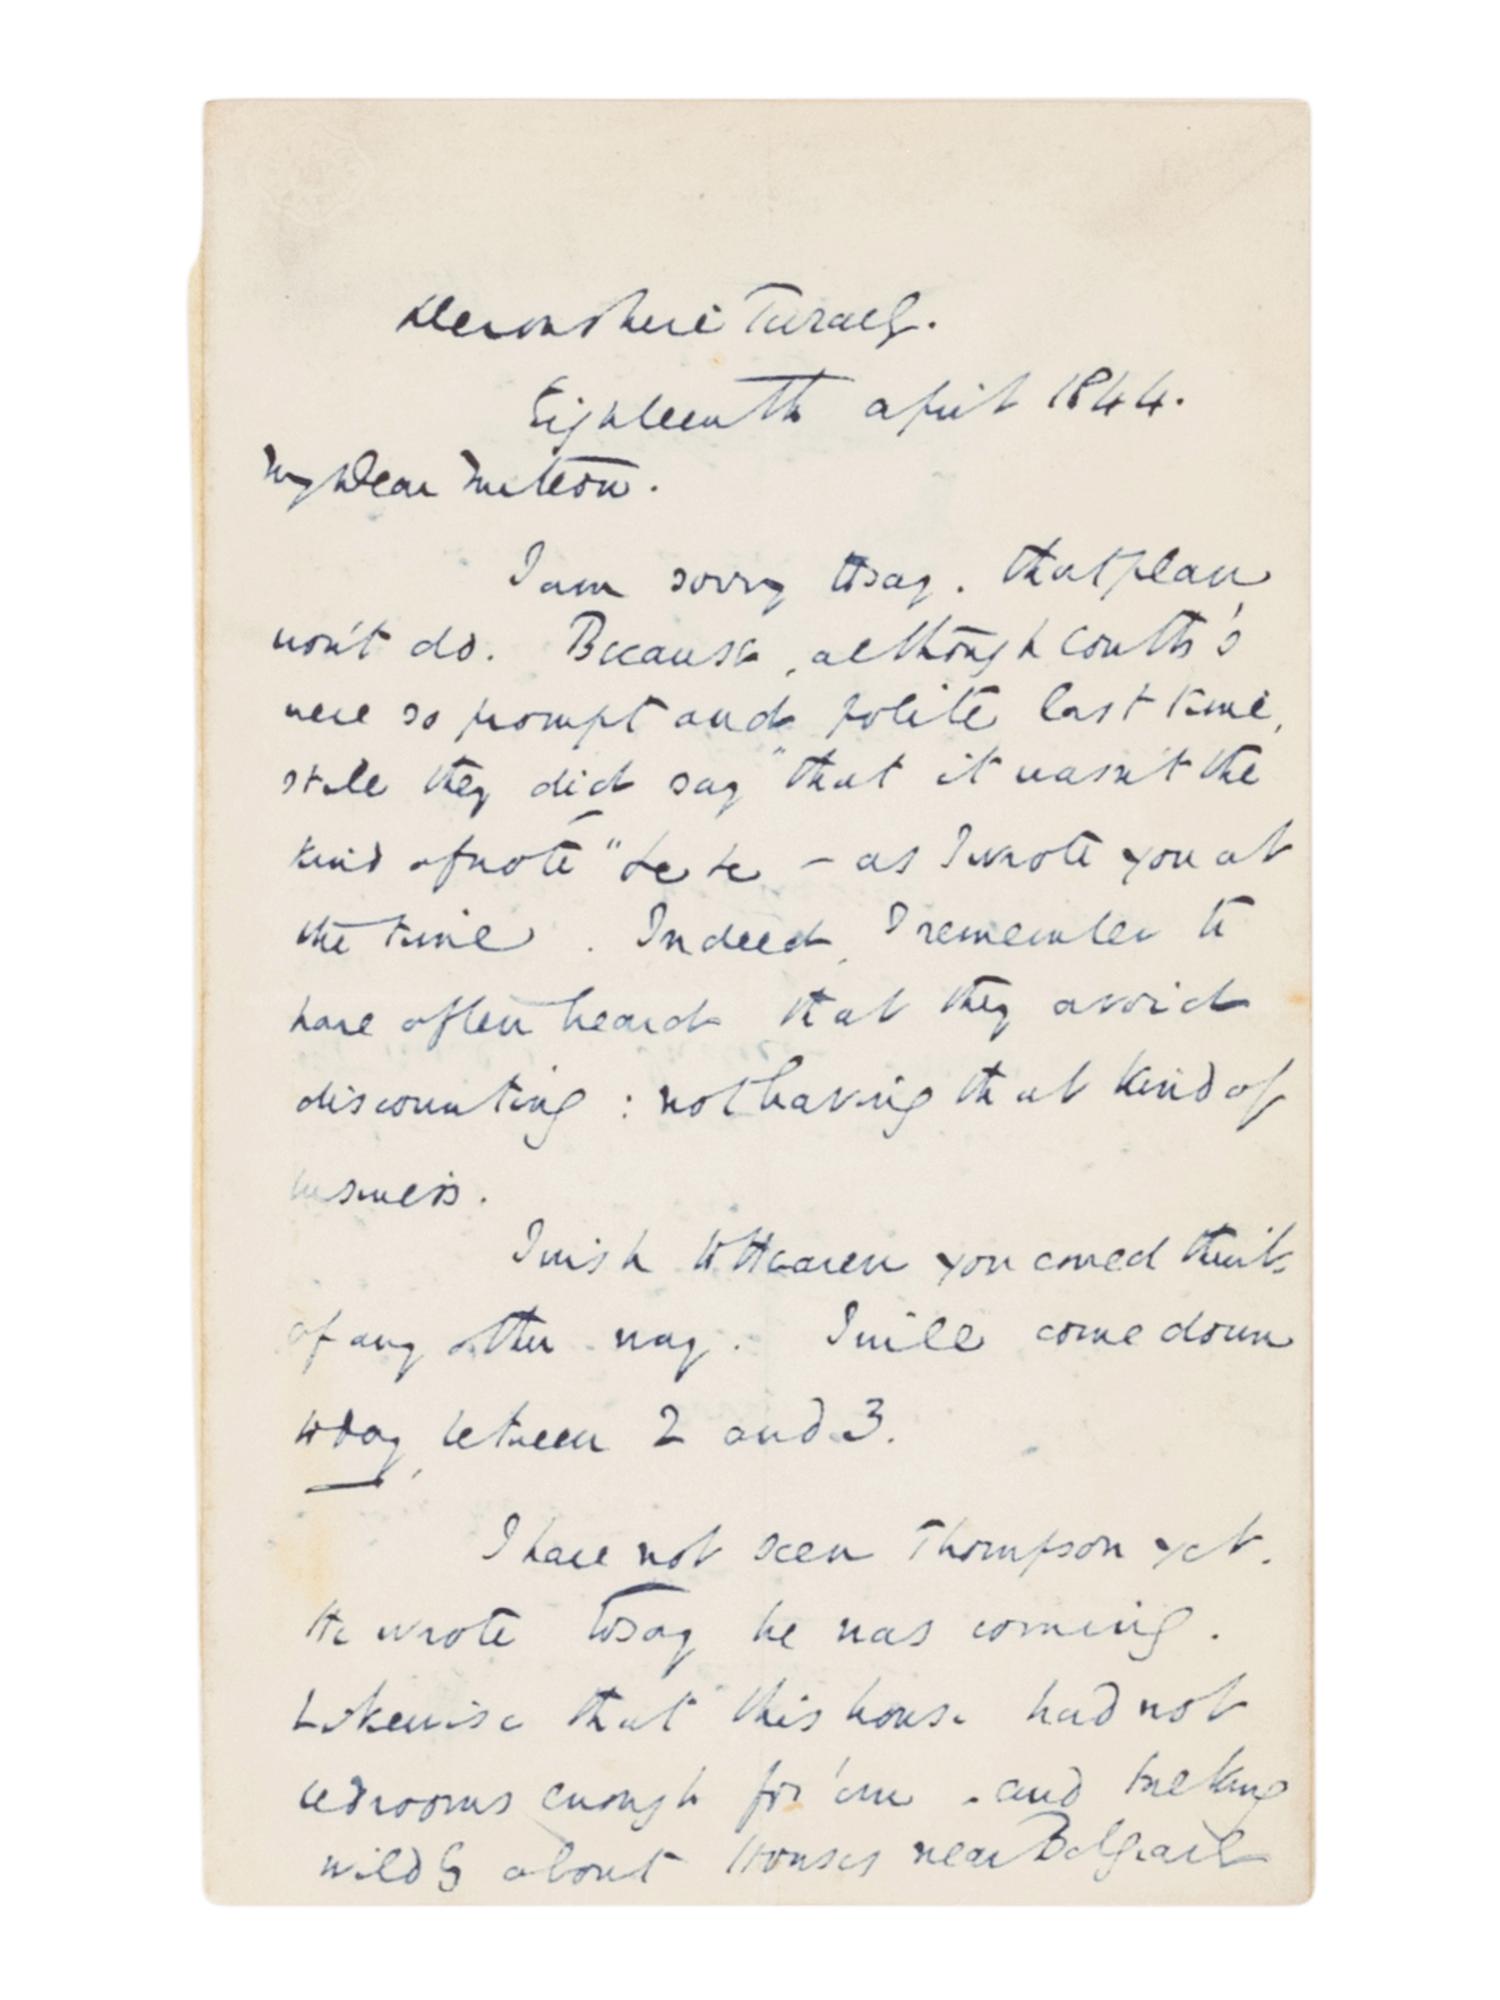 Devonshire Terrace.
Eighteenth April 1844.
My Dear Mitton.
I am sorry to say, that plan
won't do. Because, although Coutts's
were so prompt and polite last time,
still they did say "that it wasn't the
kind of note" &c &c – as I wrote you at
the time. Indeed, I remember to
have often heard that they avoid
discounting: not having that kind of
business.
I wish to Heaven you could think
of any other way. I will come down
today, between 2 and 3.
I have not seen Thompson yet.
He wrote to say he was coming.
Likewise that this house had not
bedrooms enough for 'em - and talking
wildly about Houses near Belgrave